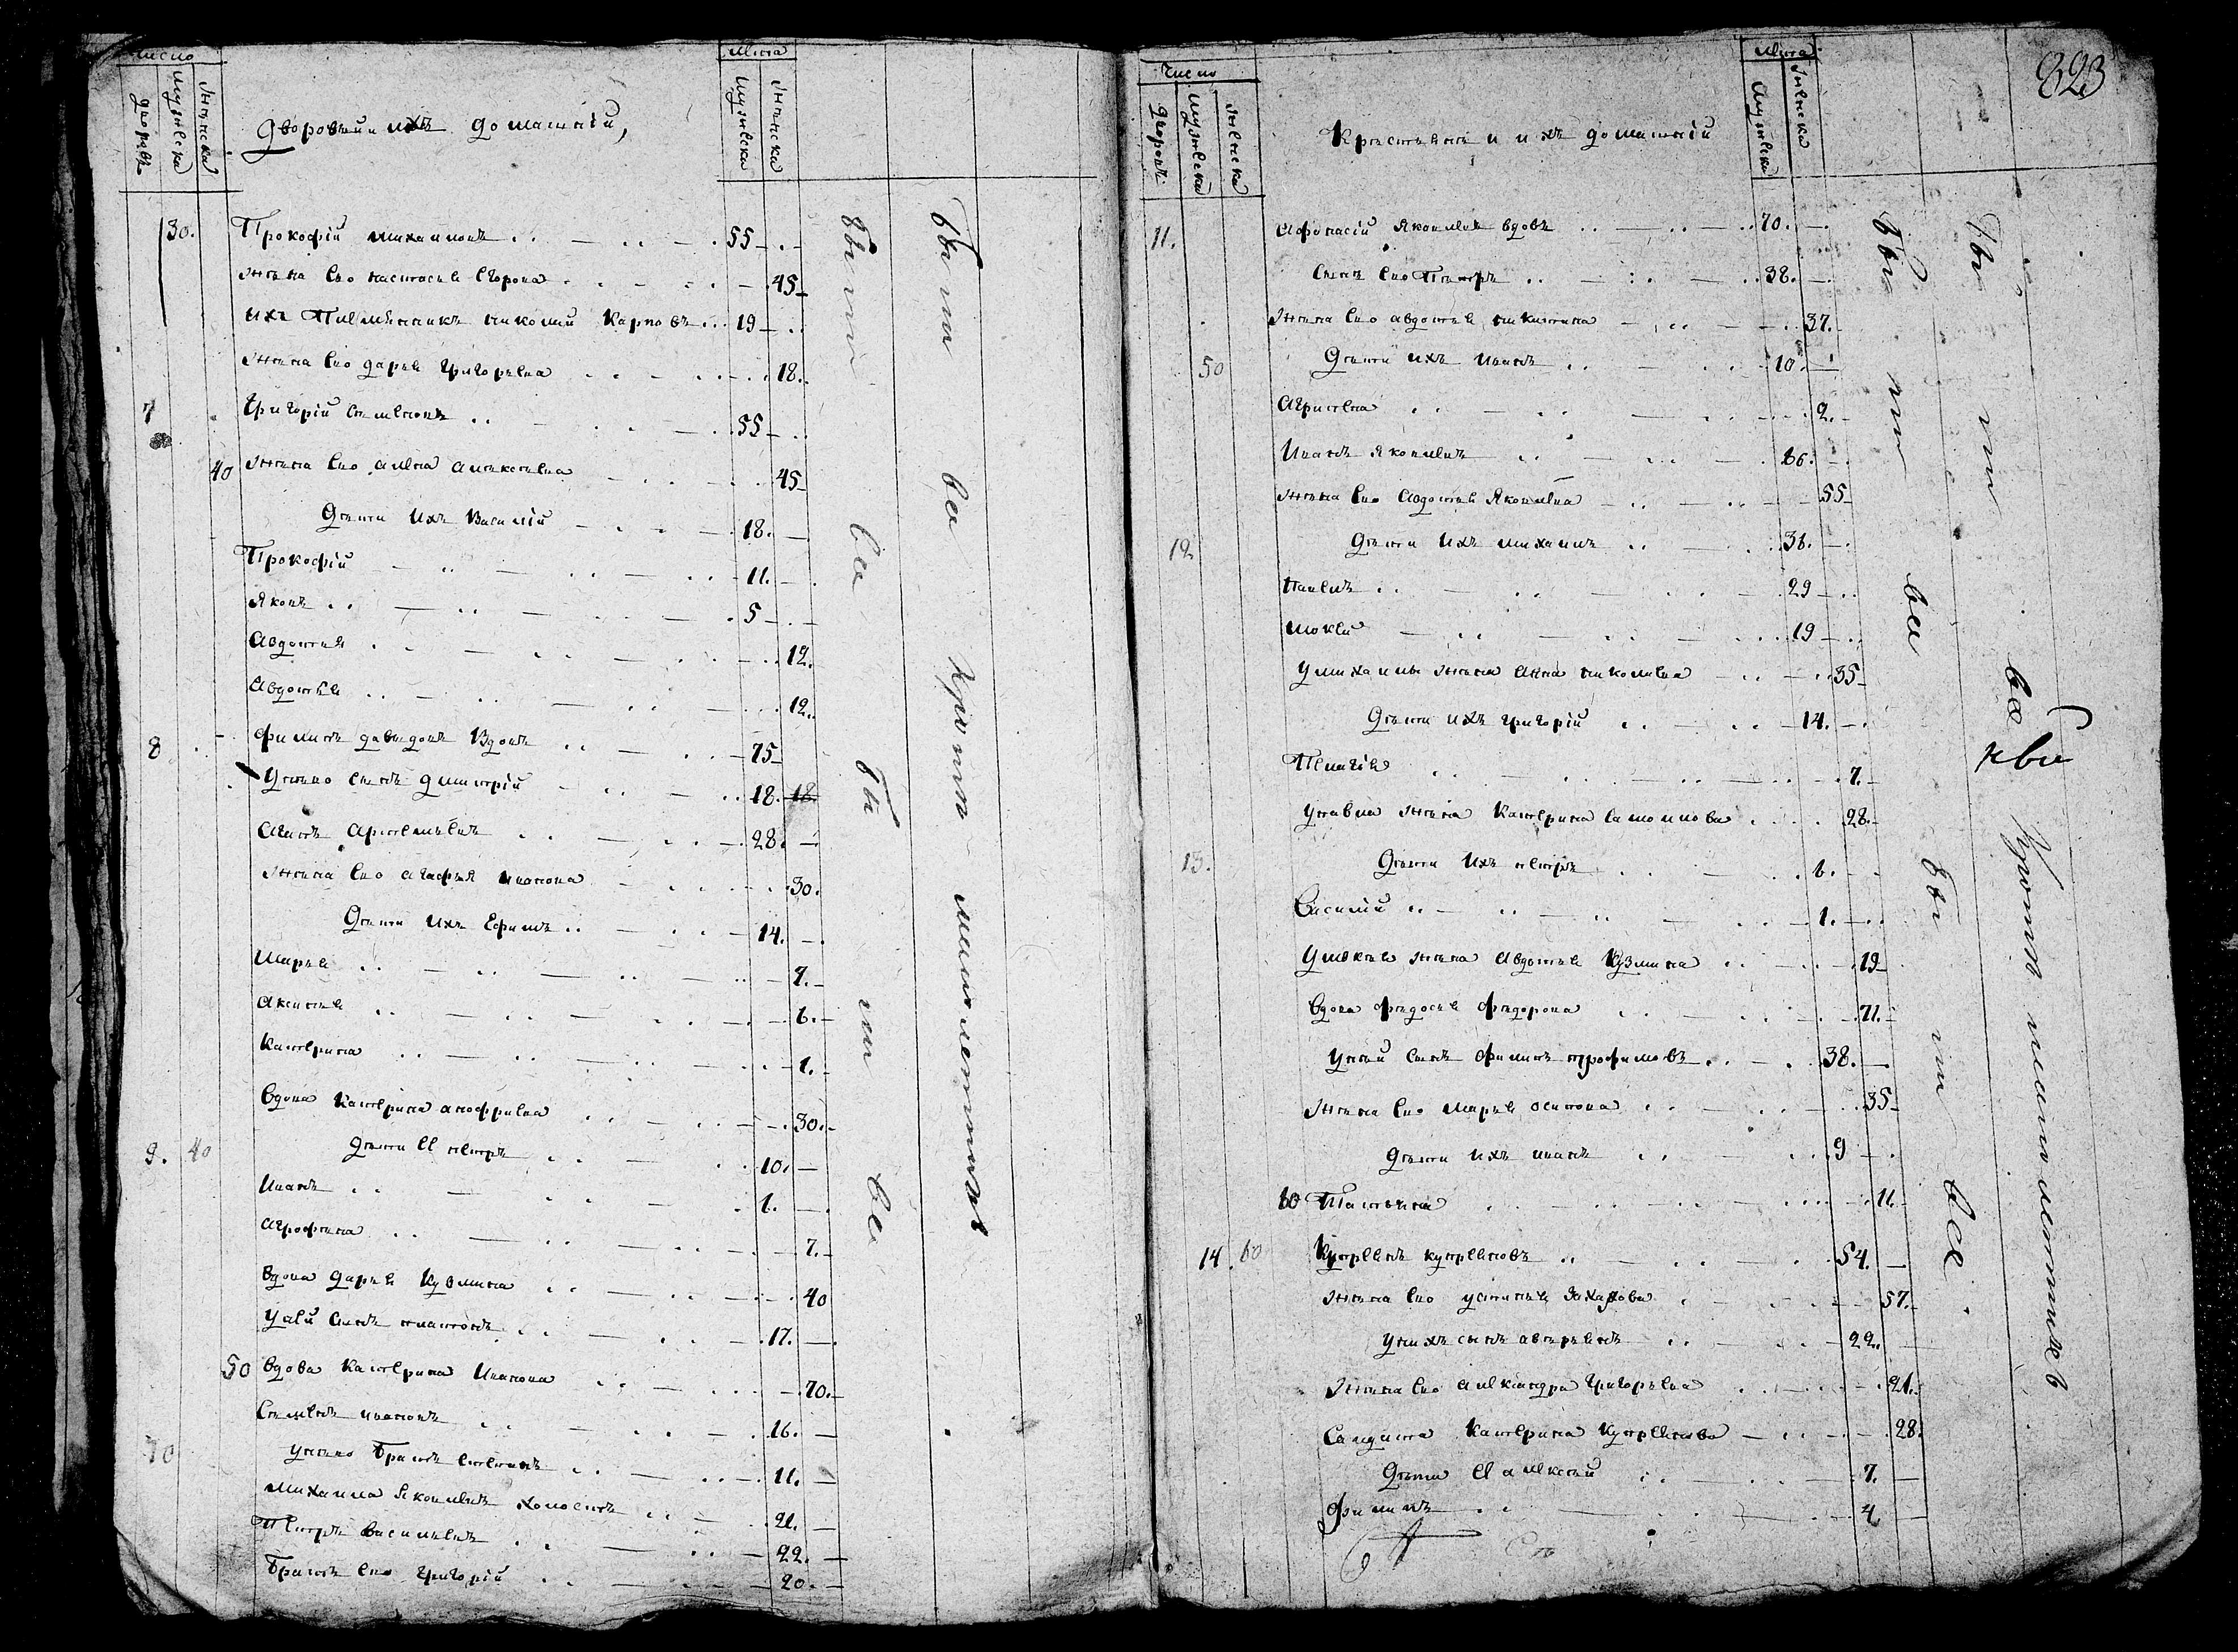 число
дворовъ
мужеска
женска
Дворовыи ихъ домашнїи,
лѣта
мужеска
женска
30. Прокофїи михаиловъ 55
жена ево настасья Егорова 45
ихъ племянникъ николаи Карповъ 19
жена ево дарья григорьева 18.
7 Григорїи семеновъ 55
40 жена ево алена алексѣева 45
дѣти ихъ Василїи 18.
Прокофїи 11.
Яковъ 5
Авдотья 12.
Авдотья 12.
8 Филипъ давыдовъ вдовъ 75
у него сынъ дмитрїи 18. 18.
Агипъ артемьевъ 28.
жена ево агафья иванова 30.
дѣти ихъ Ефимъ 14.
Марья 9.
Аксинья 6.
Катерина 1.
вдова катерина анофриева 30.
9. 40 дѣти ея петръ 10.
Иванъ 1.
Агрофина 7.
вдова дарья кузмина 40
у неи сынъ платонъ 17.
50 вдова катерина Иванова 70.
Семенъ ивановъ 16.
10 у него братъ степанъ 11.
михаила Яковлевъ холостъ 21.
Петръ васильевъ 22.
братъ ево григорїи 20.
бы ли во бы ли во
бы ли во кроме малолетныхъ
323
Число
дворовъ
мужеска
женска
Крестьяне и ихъ домашнїи
лѣта
мужеска
женска
11. Афонасїи Яковлевъ вдовъ 70.
сынъ ево Петръ 38.
жена ево авдотья никитина 37.
50 дѣти ихъ иванъ 10.
Агрипена 2.
Иванъ яковлевъ 56.
жена ево Авдотья Яковлева 55
12 дѣти ихъ михаилъ 38.
Павелъ 29
мокеи 19
у михаилы жена анна николаева 35
дѣти ихъ григорїи 14.
Пелагея 7.
у павла жена катерина самоилова 28.
13. дѣти ихъ петръ 6.
Василїи 1.
у мокея жена авдотья кузмина 19
вдова федосья федорова 71.
у неи сынъ филипъ трофимовъ 38.
жена ево марья осипова 35
дѣти ихъ иванъ 9
60 Татьяна 11.
14. 60 Купреянъ купреяновъ 54.
жена ево устинья Захарова 57.
у нихъ сынъ аверьянъ 22.
жена ево александра григорьева 21.
Салдатка катерина купреянова 28.
дѣти ея алексеи 7.
Филипъ 4
бы ли во бы ли все
бы ли во кроме малолетныхъ